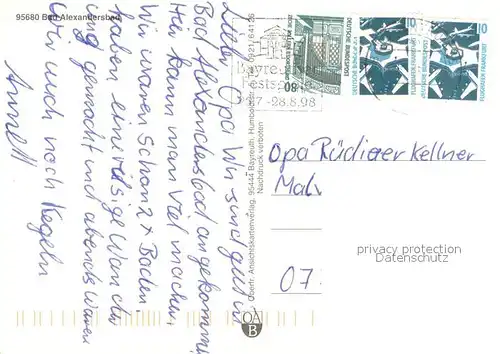 95680 Bad Alexandersbad
Lieber Opa Wir sind gut in
Bad Alexandersbad angekommen
Hier kann man viel machen,
Wir waren Schon 2x Baden.
haben eine riesige Wander
ung gemacht und abends waren
wir auch noch Kegeln
Annett
Oberfr. Ansichtskartenverlag, 95444 Bayreuth, Humboldtstr.
Nachdruck verboten
0921/64126
Bayreuther
Festspiele
28.8.98
80
DEUTSCHE BUNDESPOST
10
FLUGHAFEN FRANKFURT
DEUTSCHE BUNDESPOST
10
FLUGHAFEN FRANKFURT
DEUTSCHE BUNDESPOST
Opa Rüdiger Kellner
Malv
07
privacy protection
Datenschutz
OA
B